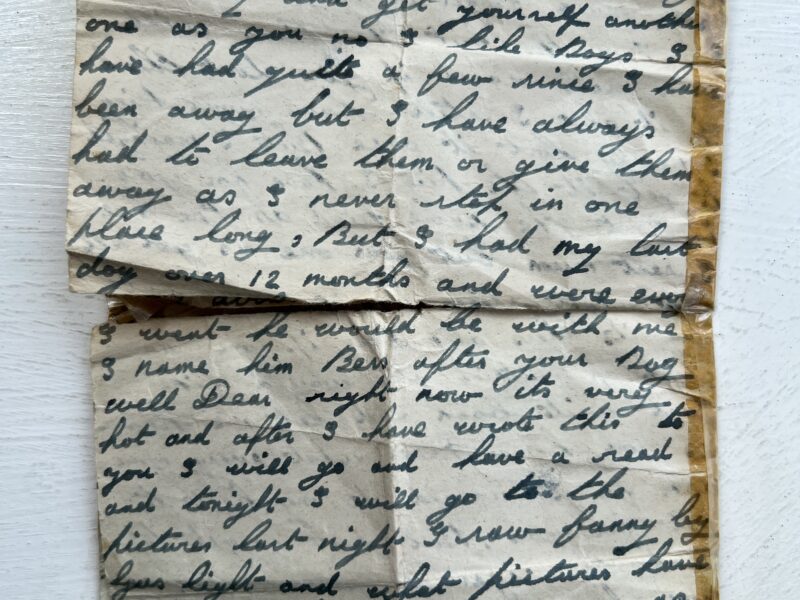 and get yourself another
one as you no I like Dogs I
have had quite a few since I have
been away but I have always
had to leave them or give them
away as I never stop in one
place long, But I had my last
dog over 12 months and were ever
I went he would be with me
I name him Bess after your Dog
well Dear right now its very
hot and after I have wrote this to
you I will go and have a read
and tonight I will go to the
pictures last night I saw fanny by
Gas light and what pictures have